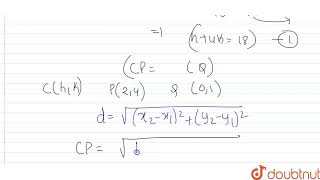 =1 (h+4k=18) — 1
(CP = CQ)
C(h,k) P(2,4) Q (0,1)
d = √(x₂-x₁)²+(y₂-y₁)²
CP = √
doubtnut